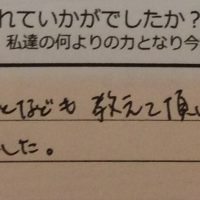 れていかがでしたか？
私達の何よりの力となり今
となども教えて頂
した。